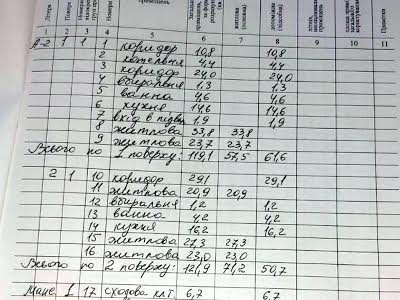 Літера
Поверх
приміщень
житлова (основна)
допоміжна (підсобна)
Примітки
1 2 3 4 5 6 7 8 9 10 11
А-2 1 1 1 коридор 10,8 10,8
2 котельня 4,4 4,4
3 коридор 24,0 24,0
4 вбиральня 1,3 1,3
5 ванна 4,6 4,6
6 кухня 14,6 14,6
7 вхід в підвал 1,9 1,9
8 житлова 33,8 33,8
9 житлова 23,7 23,7
Всього по 1 поверху: 119,1 57,5 61,6
2 1 10 коридор 29,1 29,1
11 житлова 20,9 20,9
12 вбиральня 1,2 1,2
13 ванна 4,2 4,2
14 кухня 16,2 16,2
15 житлова 27,3 27,3
16 житлова 23,0 23,0
Всього по 2 поверху: 121,9 71,2 50,7
Манс. I 17 сходова кліт. 6,7 6,7